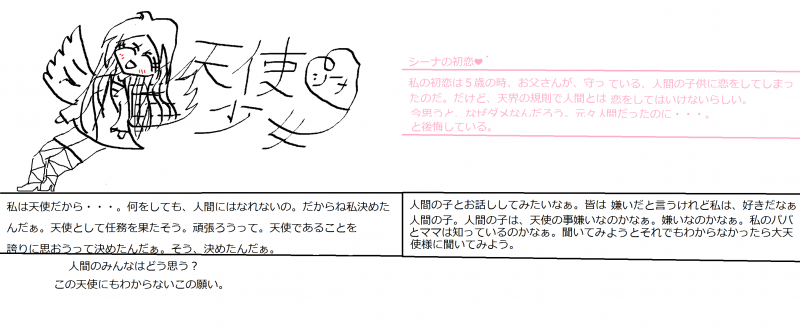 天使
少女
シーナ
シーナの初恋♥
私の初恋は５歳の時、お父さんが、守っている、人間の子供に恋をしてしまっ
たのだ。だけど、天界の規則で人間とは 恋をしてはいけないらしい。
今思うと、なぜダメなんだろう、元々人間だったのに・・・。
と後悔している。
私は天使だから・・・。何をしても、人間にはなれないの。だからね私決めた
んだぁ。天使として任務を果たそう。頑張ろうって。天使であることを
誇りに思おうって決めたんだぁ。そう、決めたんだぁ。
人間の子とお話ししてみたいなぁ。皆は 嫌いだと言うけれど私は、好きだなぁ
人間の子。人間の子は、天使の事嫌いなのかなぁ。嫌いなのかなぁ。私のパパ
とママは知っているのかなぁ。聞いてみようとそれでもわからなかったら大天
使様に聞いてみよう。
人間のみんなはどう思う？
この天使にもわからないこの願い。